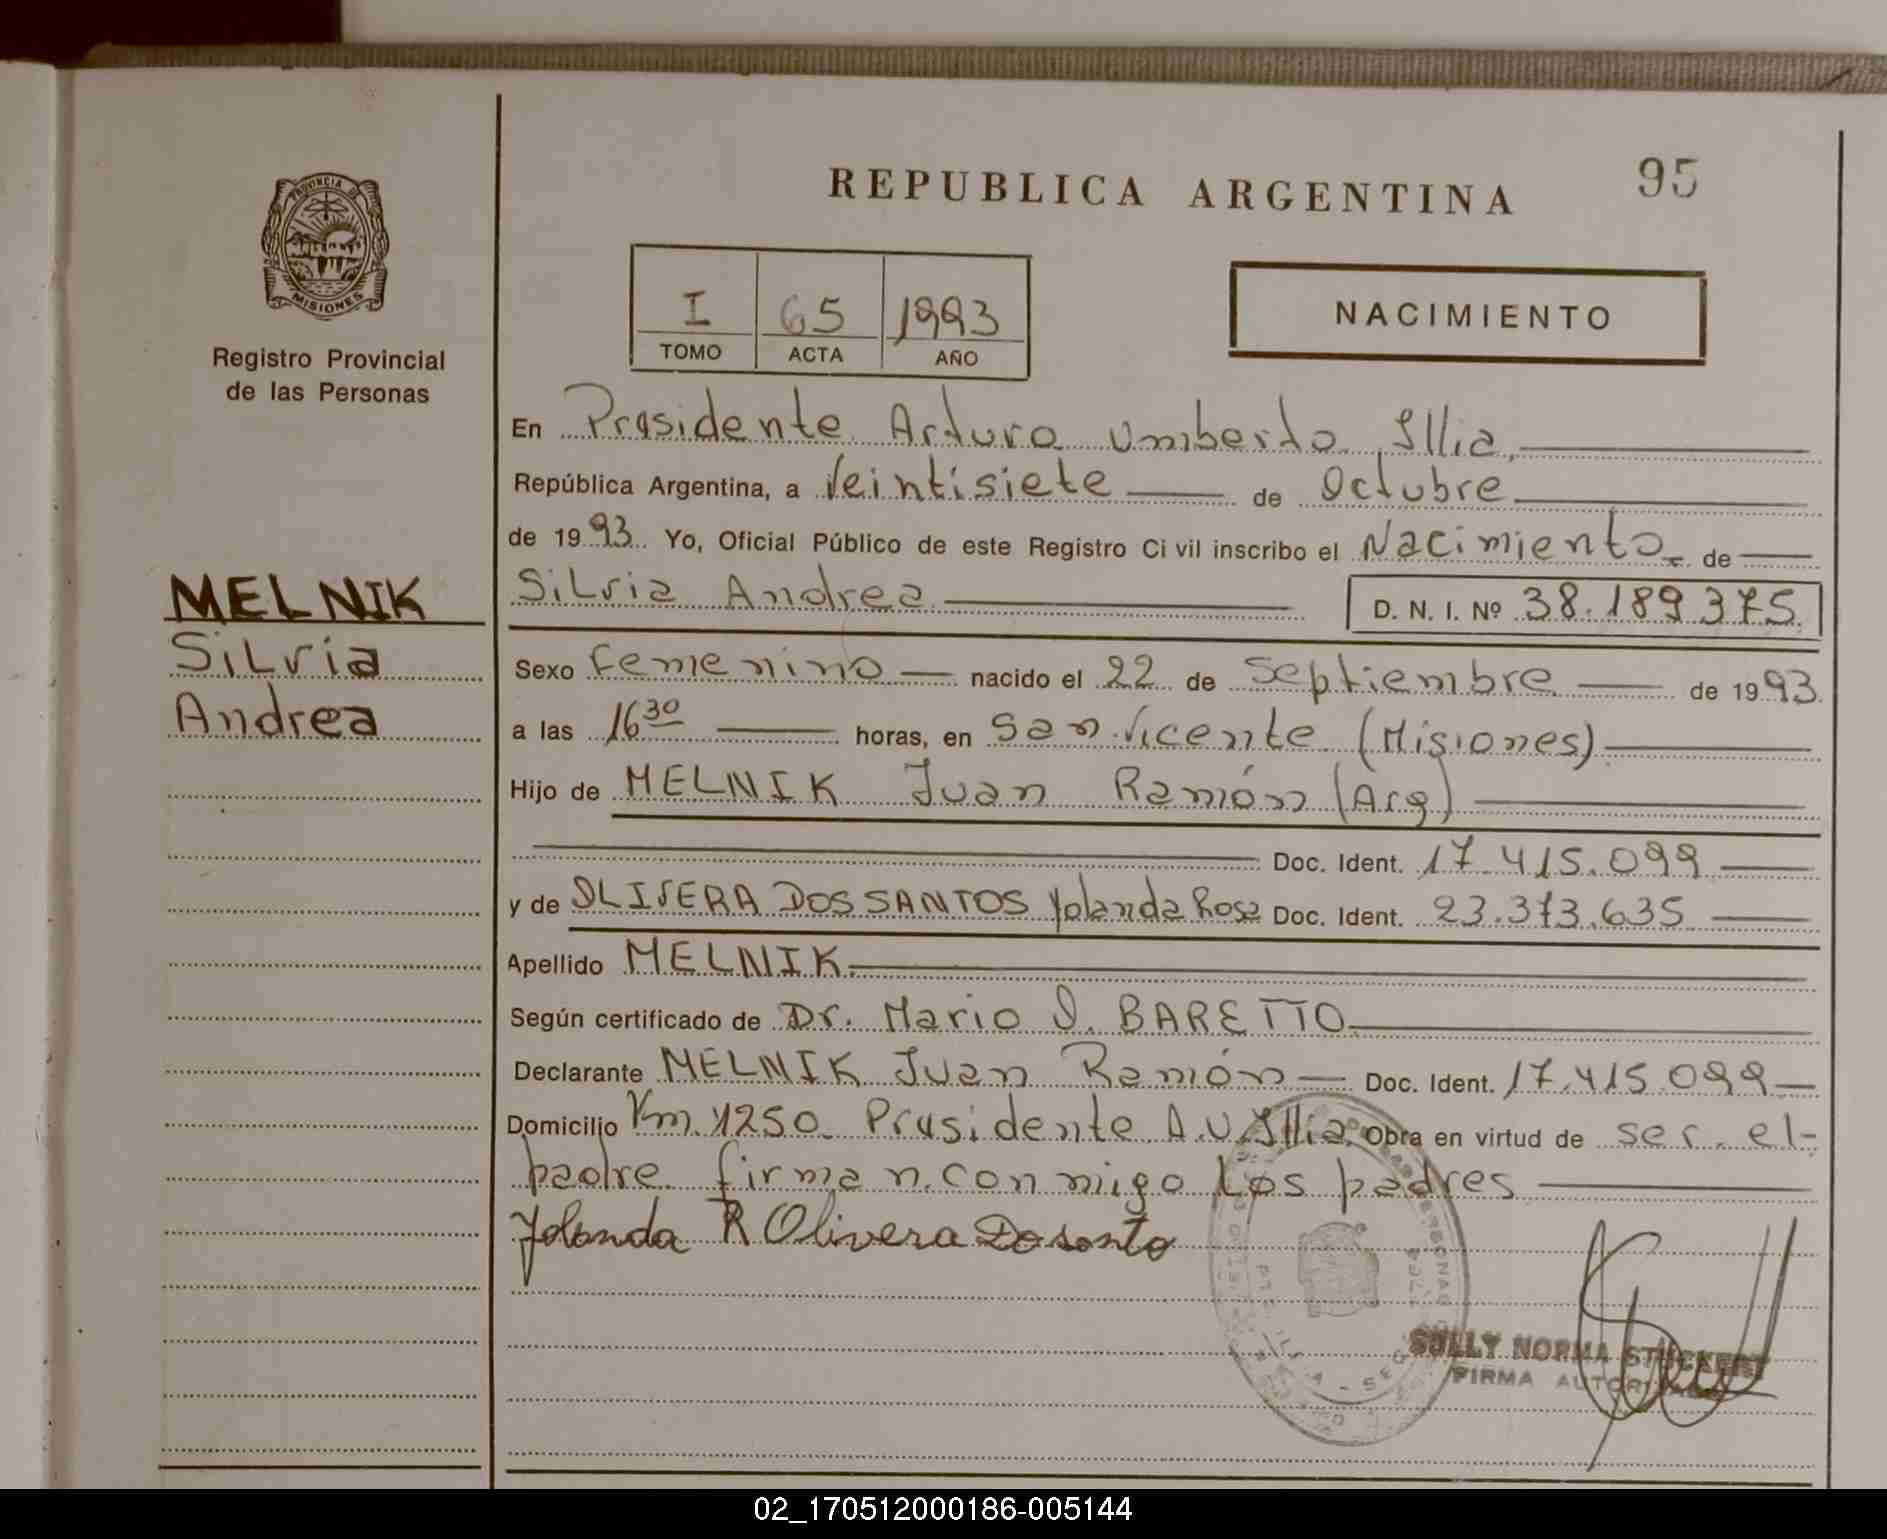 REPUBLICA ARGENTINA
95
PROVINCIA DE
MISIONES
Registro Provincial
de las Personas
I 65 1993
TOMO ACTA AÑO
NACIMIENTO
En Presidente Arturo Umberto Illia,
República Argentina, a Veintisiete de Octubre
de 1993. Yo, Oficial Público de este Registro Civil inscribo el Nacimiento de
Silvia Andrea D. N. I. Nº 38.189.375
MELNIK
Silvia
Andrea
Sexo Femenino nacido el 22 de Septiembre de 1993.
a las 16 30 horas, en San Vicente (Misiones)
Hijo de MELNIK Juan Ramón (Arg)
Doc. Ident. 17.415.099
y de OLIVERA DOS SANTOS Yolanda Rosa Doc. Ident. 23.373.635
Apellido MELNIK
Según certificado de Dr. Mario O. BARETTO
Declarante MELNIK Juan Ramón Doc. Ident. 17.415.099
Domicilio Km. 1250 Presidente A.U. Illia. Obra en virtud de ser el
padre firman conmigo los padres
Yolanda R Olivera Dosanto
SULLY NORMA STUCKERT
FIRMA AUTORIZADA
02_170512000186-005144